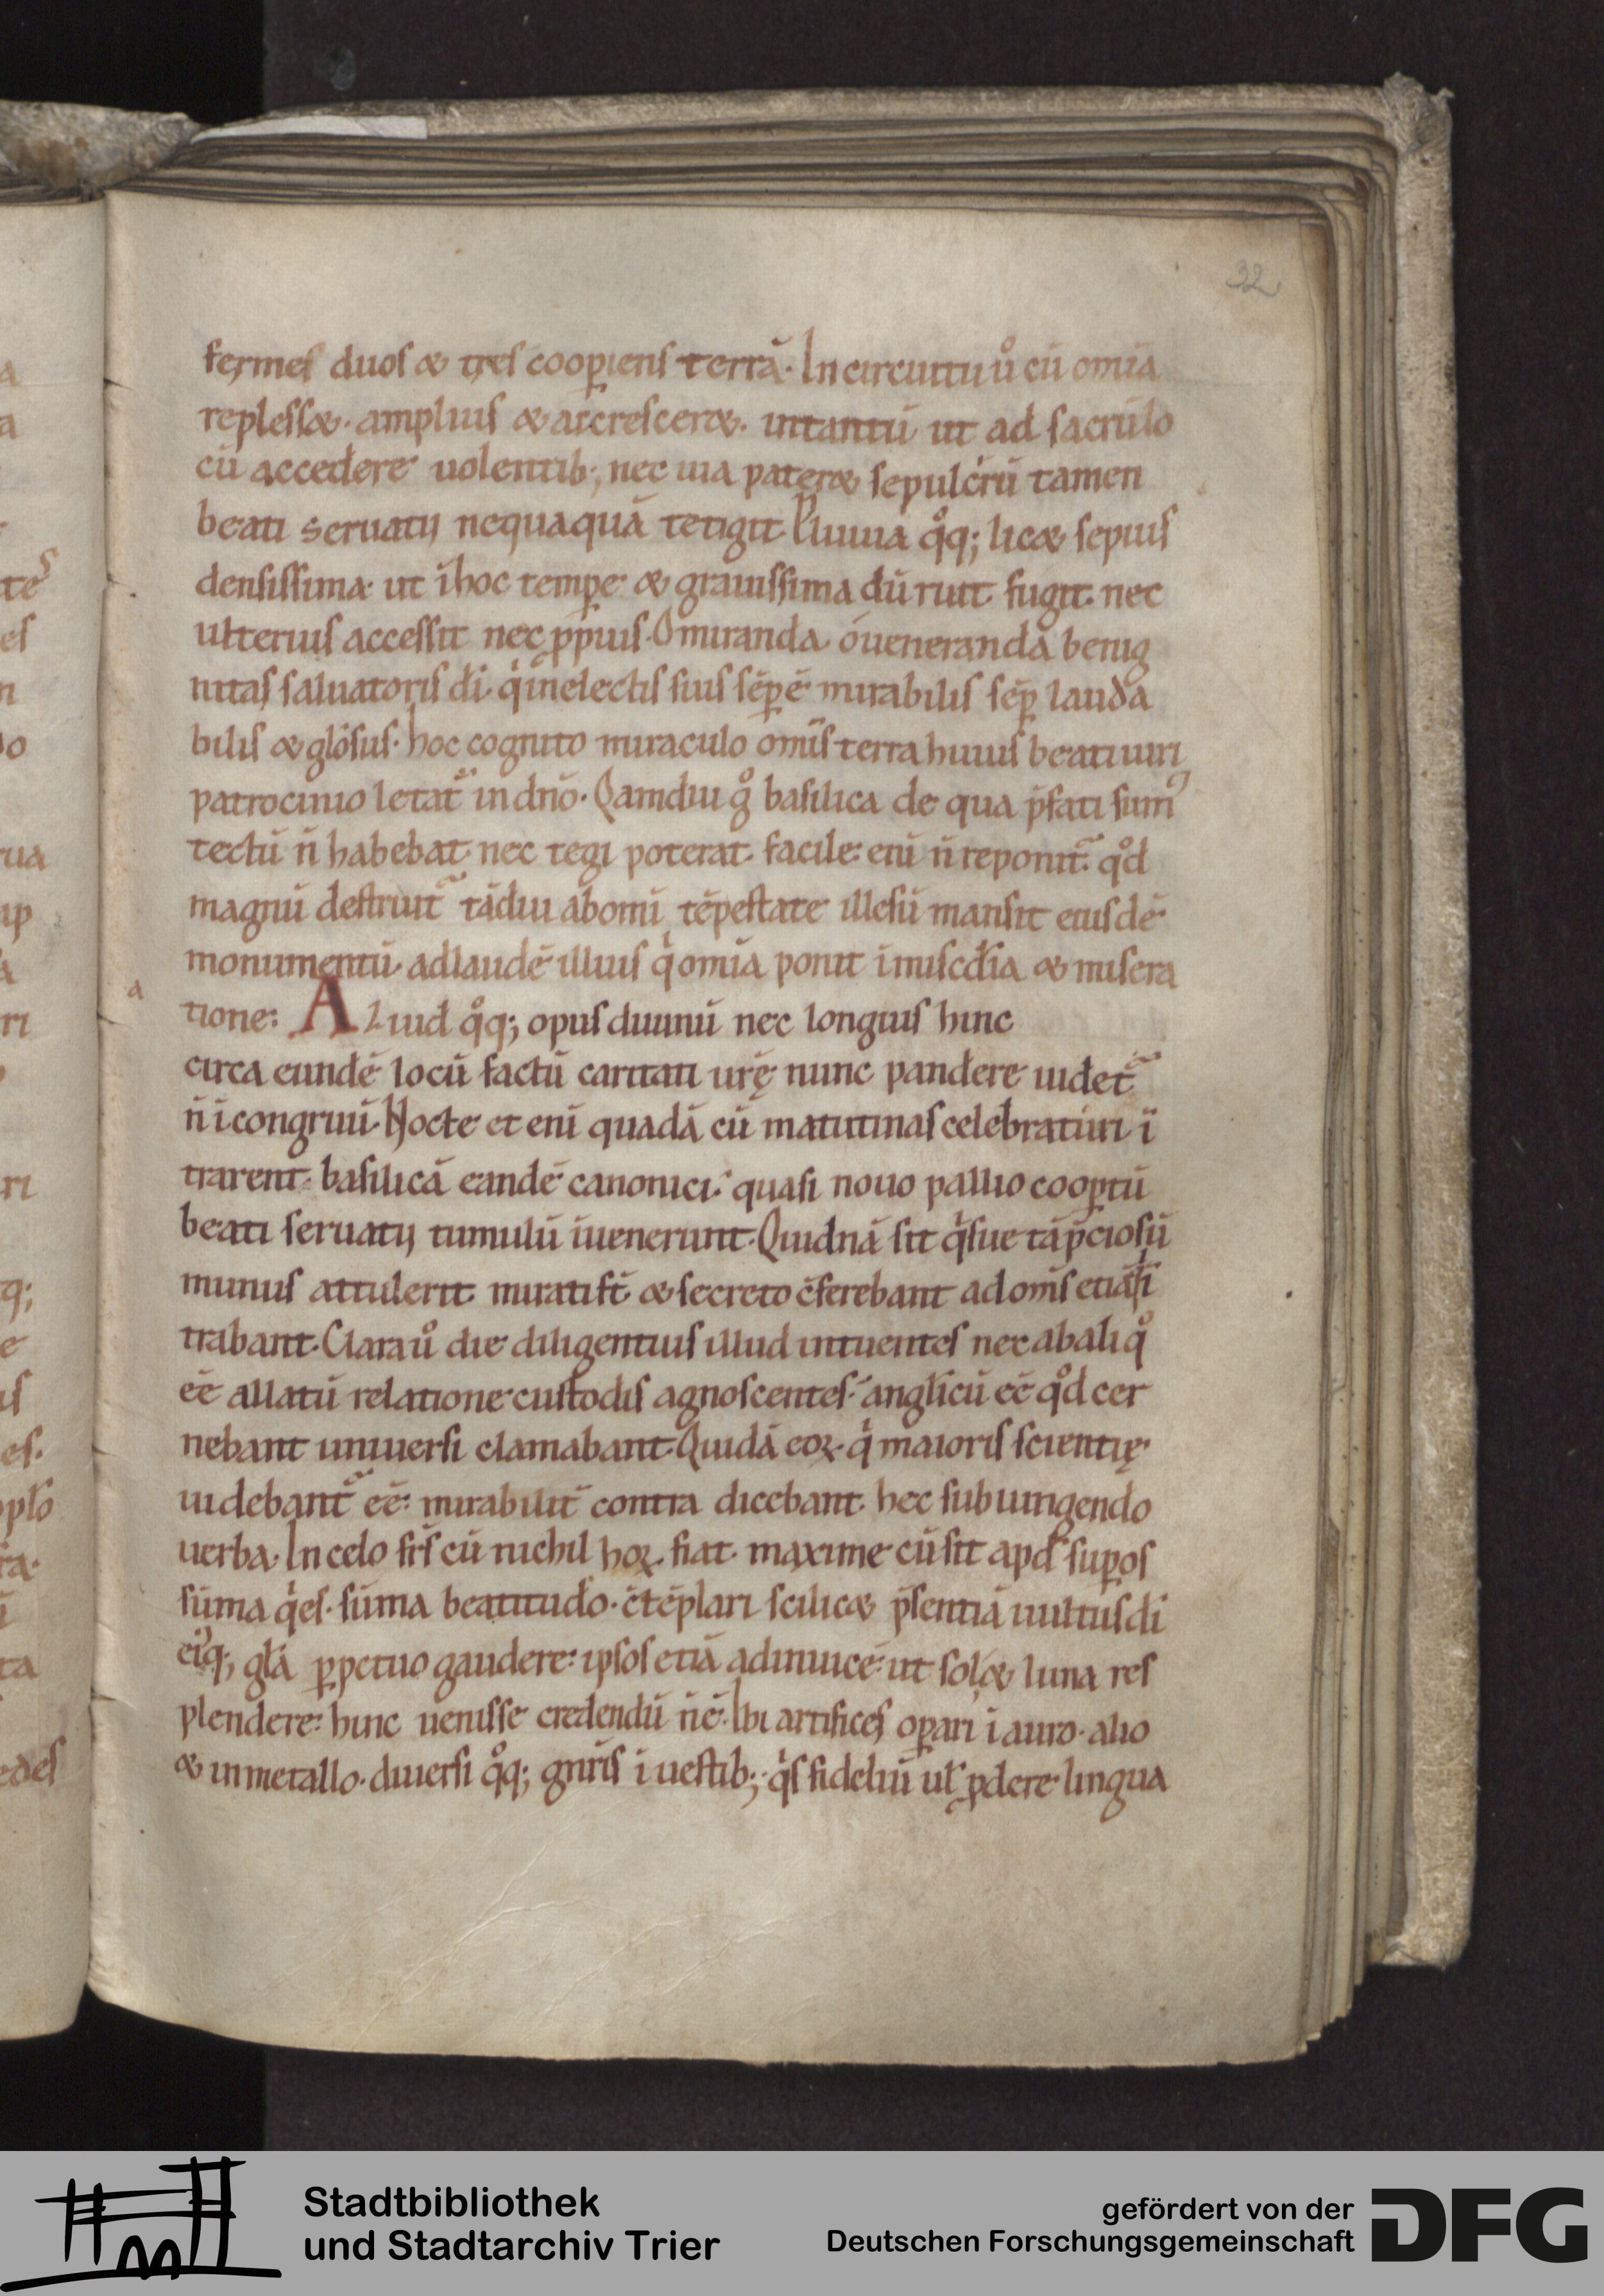 32
fermes duos & tres coop̱iens terrā. In circuitu ů cū om̄ia
repless&. amplius & accrescer&. intantū ut ad sacrū lo
cū accedere uolentib; nec uia pater& sepulcrū tamen
beati seruatij nequaquā tetigit. Pluuia q̊q; lic& sepius
densissima ut ī hoc temp̱e & grauissima dū ruit fugit. nec
ulterius accessit nec ꝓpius. O miranda ó ueneranda benig
nitas saluatoris dī. qͥ in electis suis sēp̱ ē mirabilis sēp̱ lauda
bilis & glōsus. hoc cognito miraculo om̄is terra huius beati uiri
patrocinio letat᷑ in dn̄o. Qamdiu g̊ basilica de qua p̄fati sumꝰ
tectū n̄ habebat nec tegi poterat. facile enī n̄ reponit᷑ q̊d
magnū destruit᷑ tādiu ab omī tēpestate illesū mansit eiusdē
monumentū. ad laudē illius qͥ om̄ia ponit ī misc̄dia & misera
tione:
a
ALiud q̊q; opus diuinū nec longius hinc
circa eundē locū factū caritati ur̄ę nunc pandere uidet᷑
n̄ īcongruū. Nocte et enī quadā cū matutinas celebraturi ī
trarent. basilicā eandē canonici. quasi nouo pallio coop̱tū
beati seruatij tumulū īuenerunt. Quidnā sit qͥsue tā p̄ciosū
munus attulerit mirati st̄. & secreto c̄ferebant ad om̄s etiā fī
trabant. Clara ů die diligentius illud intuentes nec ab aliq̊
eē allatū relatione custodis agnoscentes. anglicū eē q̊d cer
nebant uniuersi clamabant. Quidā eoꝝ. qͥ maioris scientię
uidebant᷑ eē. mirabilit̄ contra dicebant. hec subiungendo
uerba. In celo fr̄s cū nichil hoꝝ fiat. maxime cū sit apd̄ sup̱os
sūma qͥes. sūma beatitudo. c̄tēplari scilic& p̄sentiā uultus dī
eiꝰq; gl̄a p̱petuo gaudere. ipsos etiā adinuicē ut sol & luna res
plendere. hinc uenisse credendū n̄ ē. Ibi artifices op̱ari ī auro. alio
& in metallo. diuersi q̊q; gn̄ris ī uestib;. qͥs fideliū ul̄ ꝓdere lingua
Stadtbibliothek
und Stadtarchiv Trier
gefördert von der
Deutschen Forschungsgemeinschaft
DFG